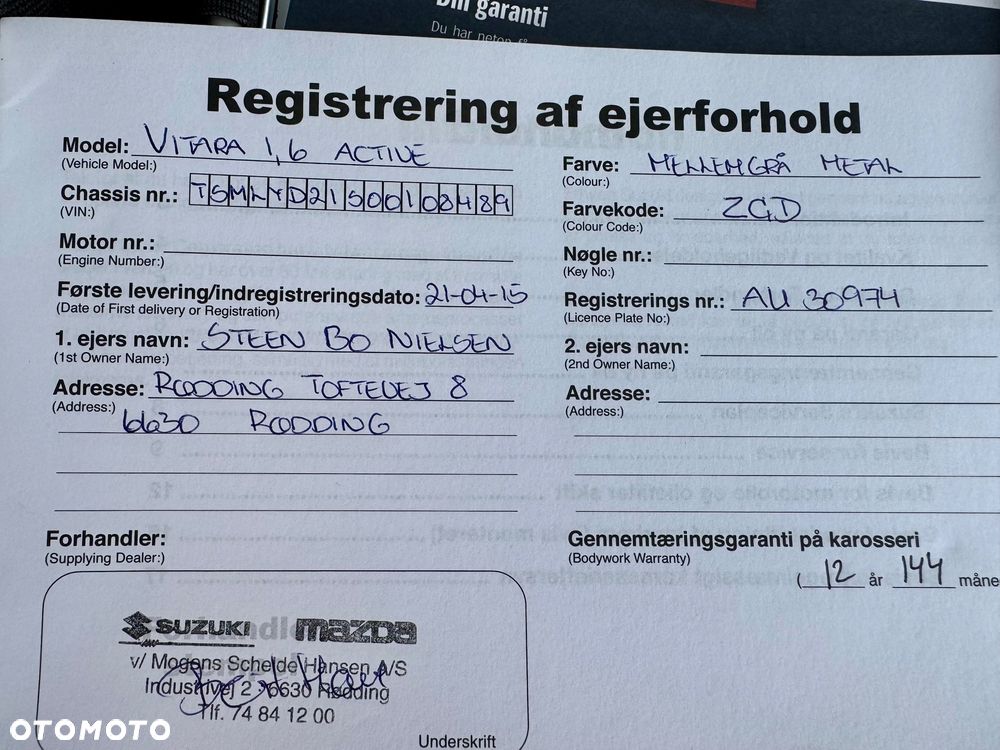 Din garanti
Du har netop få
Registrering af ejerforhold
Model: VITARA 1,6 ACTIVE
(Vehicle Model:)
Chassis nr.: TSMLYD21S00108489
(VIN:)
Motor nr.:
(Engine Number:)
Første levering/indregistreringsdato: 21-04-15
(Date of First delivery or Registration)
1. ejers navn: STEEN BO NIELSEN
(1st Owner Name:)
Adresse: RØDDING TOFTEVEJ 8
(Address:)
6630 RØDDING
Farve: MELLEMGRÅ METAL
(Colour:)
Farvekode: ZGD
(Colour Code:)
Nøgle nr.:
(Key No:)
Registrerings nr.: AU 30974
(Licence Plate No:)
2. ejers navn:
(2nd Owner Name:)
Adresse:
(Address:)
Forhandler:
(Supplying Dealer:)
SUZUKI mazda
v/ Mogens Schelde Hansen A/S
Industrivej 2 · 6630 Rødding
Tlf. 74 84 12 00
Underskrift
Gennemtæringsgaranti på karosseri
(Bodywork Warranty)
12 år 144 måne
OTOMOTO